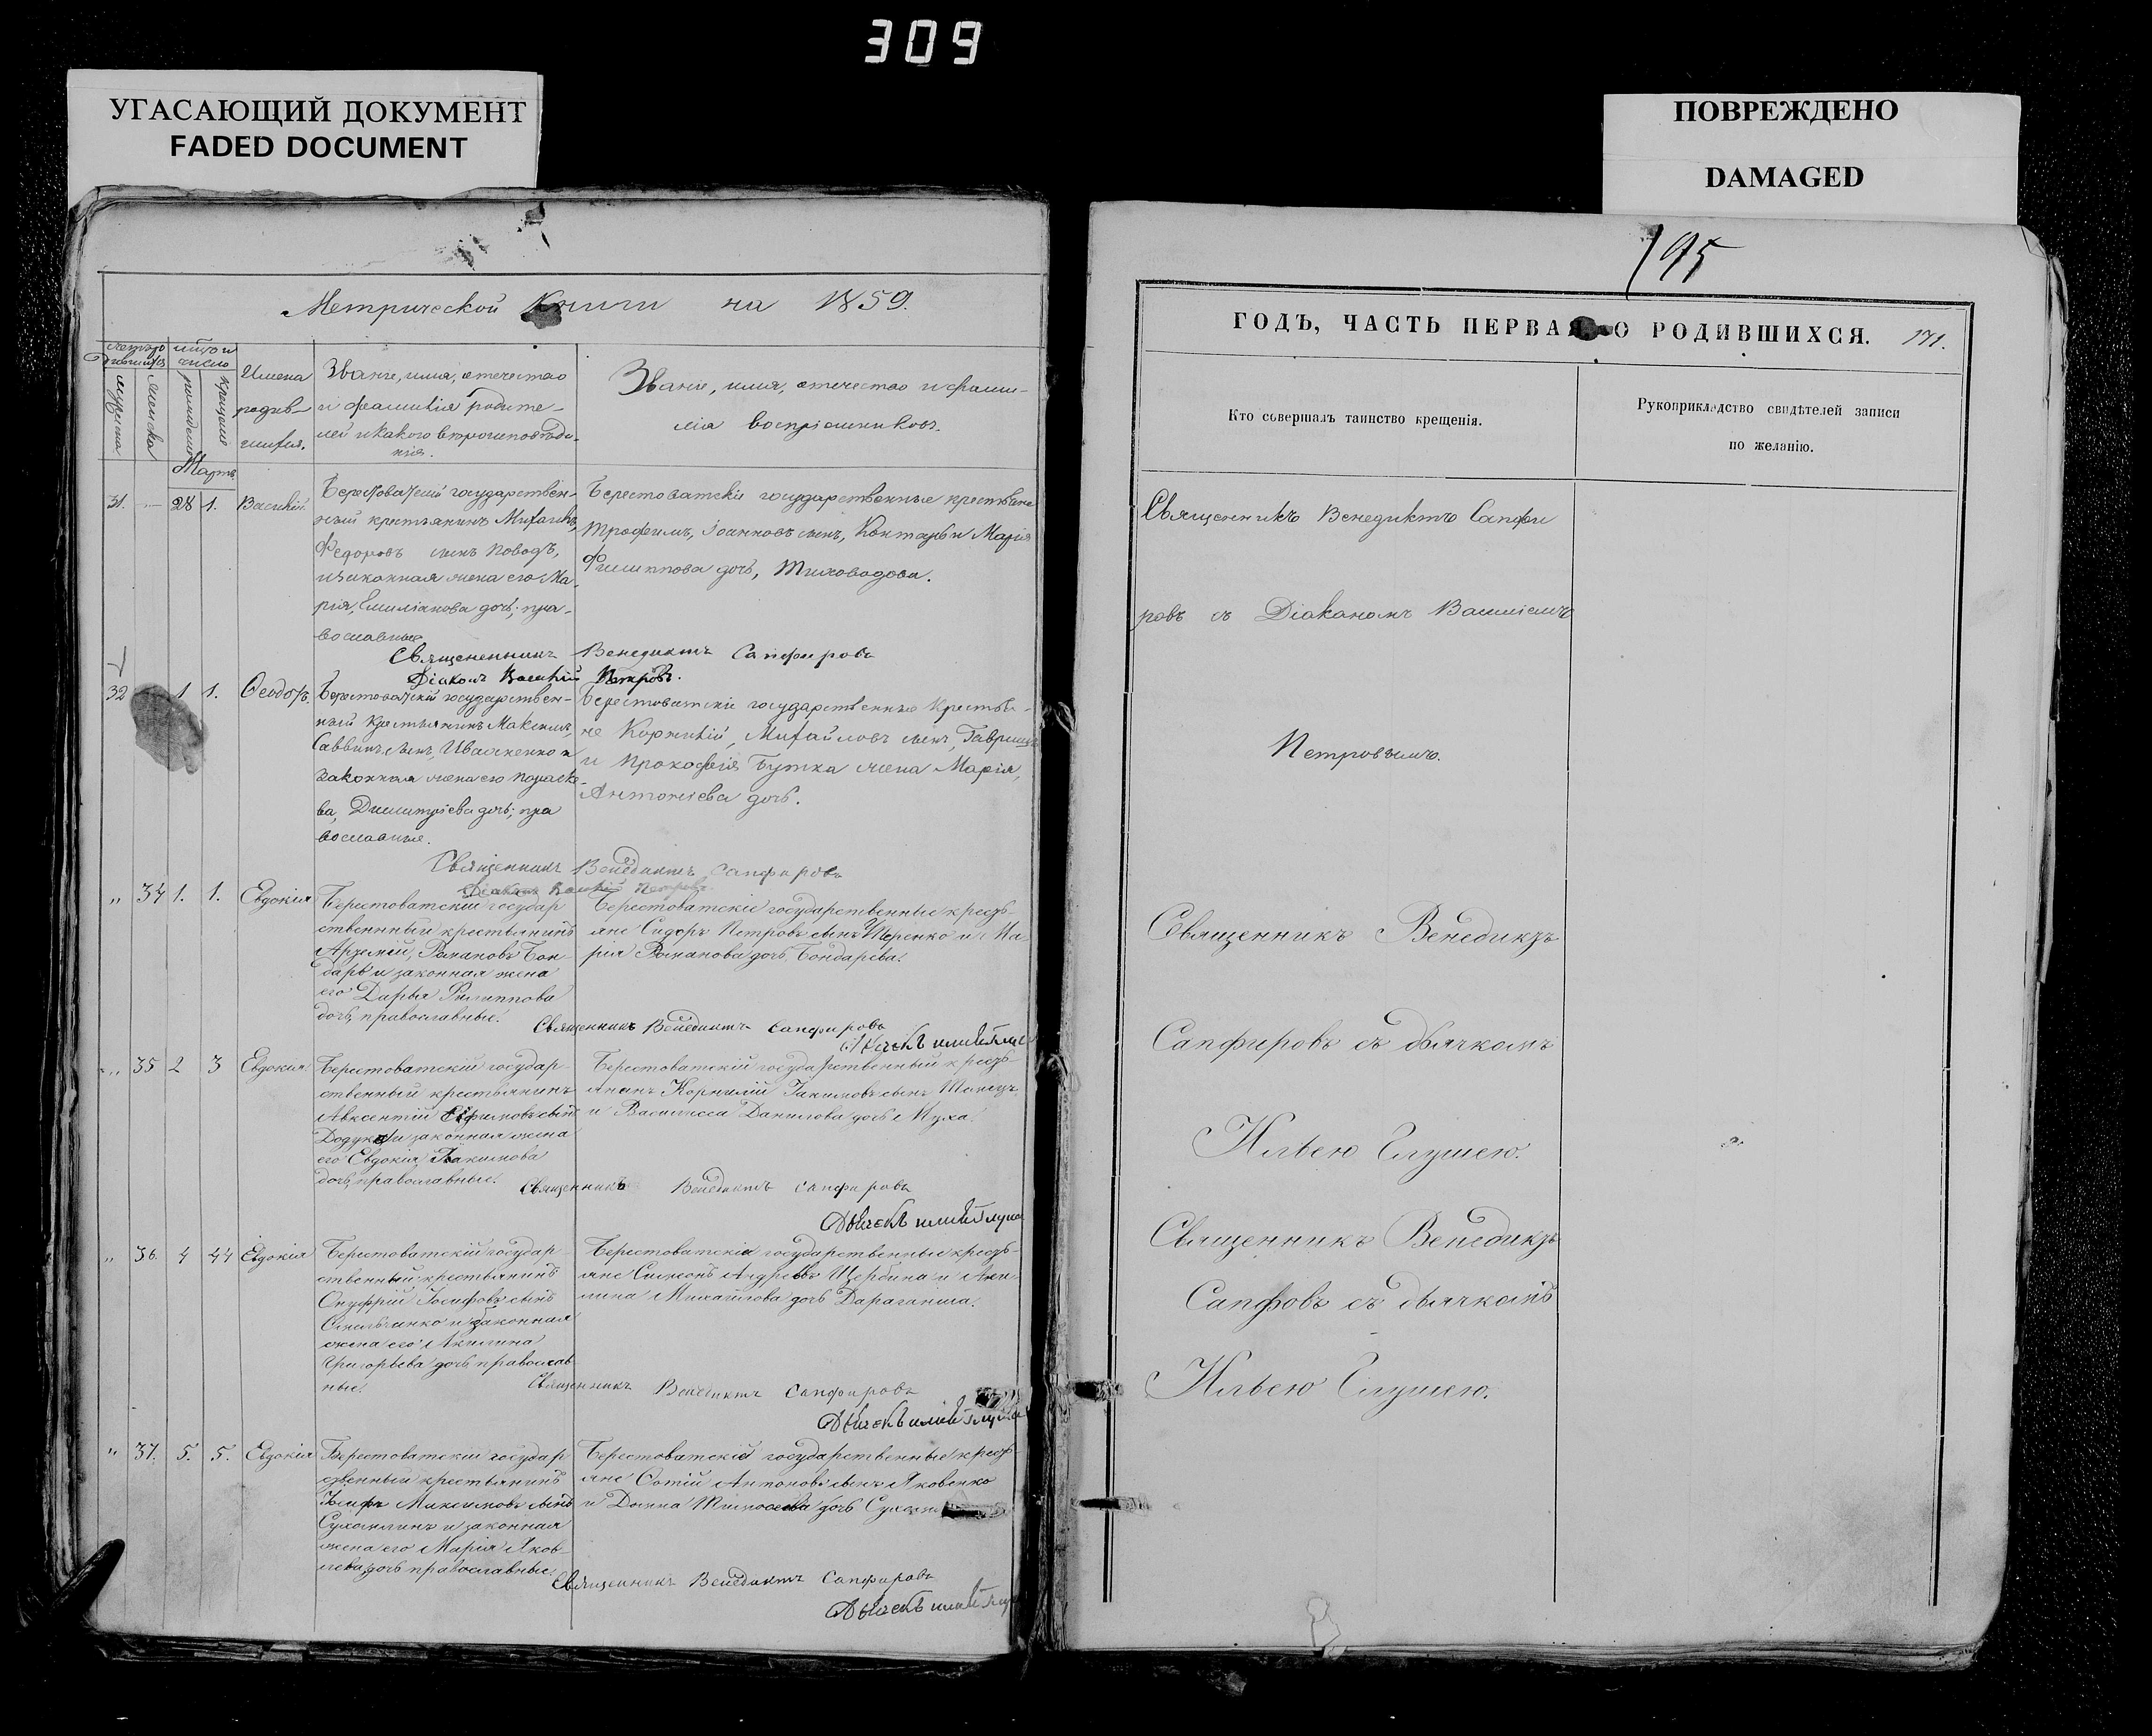 309
УГАСАЮЩИЙ ДОКУМЕНТ
FADED DOCUMENT
ПОВРЕЖДЕНО
DAMAGED
195
Метрической Книги на 1859.
ГОДЪ, ЧАСТЬ ПЕРВАЯ О РОДИВШИХСЯ. 171.
Имена
родив-
шихся.
Званіе, имя, отечество
и фамилія родите-
лей и какого вѣроисповѣда-
нія.
Званіе, имя, отечество и фами-
лія воспріемниковъ.
Кто совершалъ таинство крещенія.
Рукоприкладство свидѣтелей записи
по желанію.
Мартъ
31. — 28 1. Василій.
Берестоватскій государствен-
ный крестьянинъ Михаилъ,
Федоровъ сынъ Поводъ,
и законная жена его Ма-
рія, Емиліанова дочь; пра-
вославные
Берестоватскіе государственные крестьяне
Трофимъ, Іоанновъ сынъ, и Марія
Филиппова дочь, Тиховодова.
Священникъ Венедиктъ Сапфировъ
Діаконъ Василій Петровъ.
Священникъ Венедиктъ Сапфи
ровъ съ Діаканомъ Василіемъ
Петровымъ.
32 1 1. Ѳеодоръ.
Берестоватскій государствен-
ный крестьянинъ Максимъ,
Саввинъ сынъ, Иващенко и
законная жена его Параске-
ва, Димитріева дочь; пра
вославные.
Берестоватскіе государственные крестья-
не Корнилій, Михайловъ сынъ,
и Прокофія Бутка жена Марія,
Антоніева дочь.
Священникъ Венедиктъ Сапфировъ
Діаконъ Василій Петровъ
„ 34 1. 1. Евдокія
Берестоватскій государ
ственнный крестьянинъ
Артемій, Романовъ Бон-
дарь и законная жена
его Дарья Филиппова
дочь, православные.
Берестоватскіе государственные кресть-
яне Сидоръ Петровъ сынъ и Ма-
рія Романова дочь Бондарева.
Священникъ Венедиктъ Сапфировъ
Священникъ Венедиктъ
Сапфировъ съ дьячкомъ
Ильею Глушею.
„ 35 2 3 Евдокія
Берестоватскій государ-
ственный крестьянинъ
Авксентій Ефимовъ сынъ
и законная жена
его Евдокія Іакимова
дочь, православные.
Берестоватскій государственный кресть-
янинъ Корнилій Іакимовъ сынъ
и Василисса Данилова дочь Муха.
Священникъ Венедиктъ Сапфировъ
Дьячекъ
„ 36. 4 44 Евдокія
Берестоватскій государ-
ственный крестьянинъ
Онуфрій Іосифовъ сынъ
Омельченко и законная
жена его Акилина
Григорьева дочь, православ-
ные.
Берестоватскіе государственные кресть-
яне Симеонъ Андреевъ Щербина и Аки-
лина Михайлова дочь Дараганша.
Священникъ Венедиктъ Сапфировъ
Дьячекъ
Священникъ Венедиктъ
Сапфовъ съ дьячкомъ
Ильею Глушею.
„ 37. 5. 5. Евдокія
Берестоватскій государ
ственный крестьянинъ
Іосифъ Максимовъ сынъ
и законная
жена его Марія Яков-
лева дочь православные.
Берестоватскіе государственные кресть-
яне Фотій Антоновъ сынъ Яковенко
и Домна Тимофеева дочь
Священникъ Венедиктъ Сапфировъ
Дьячекъ